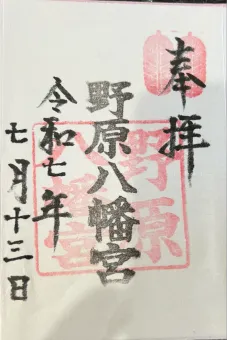 奉拝
野原八幡宮
令和七年
七月十三日
野原
八幡宮